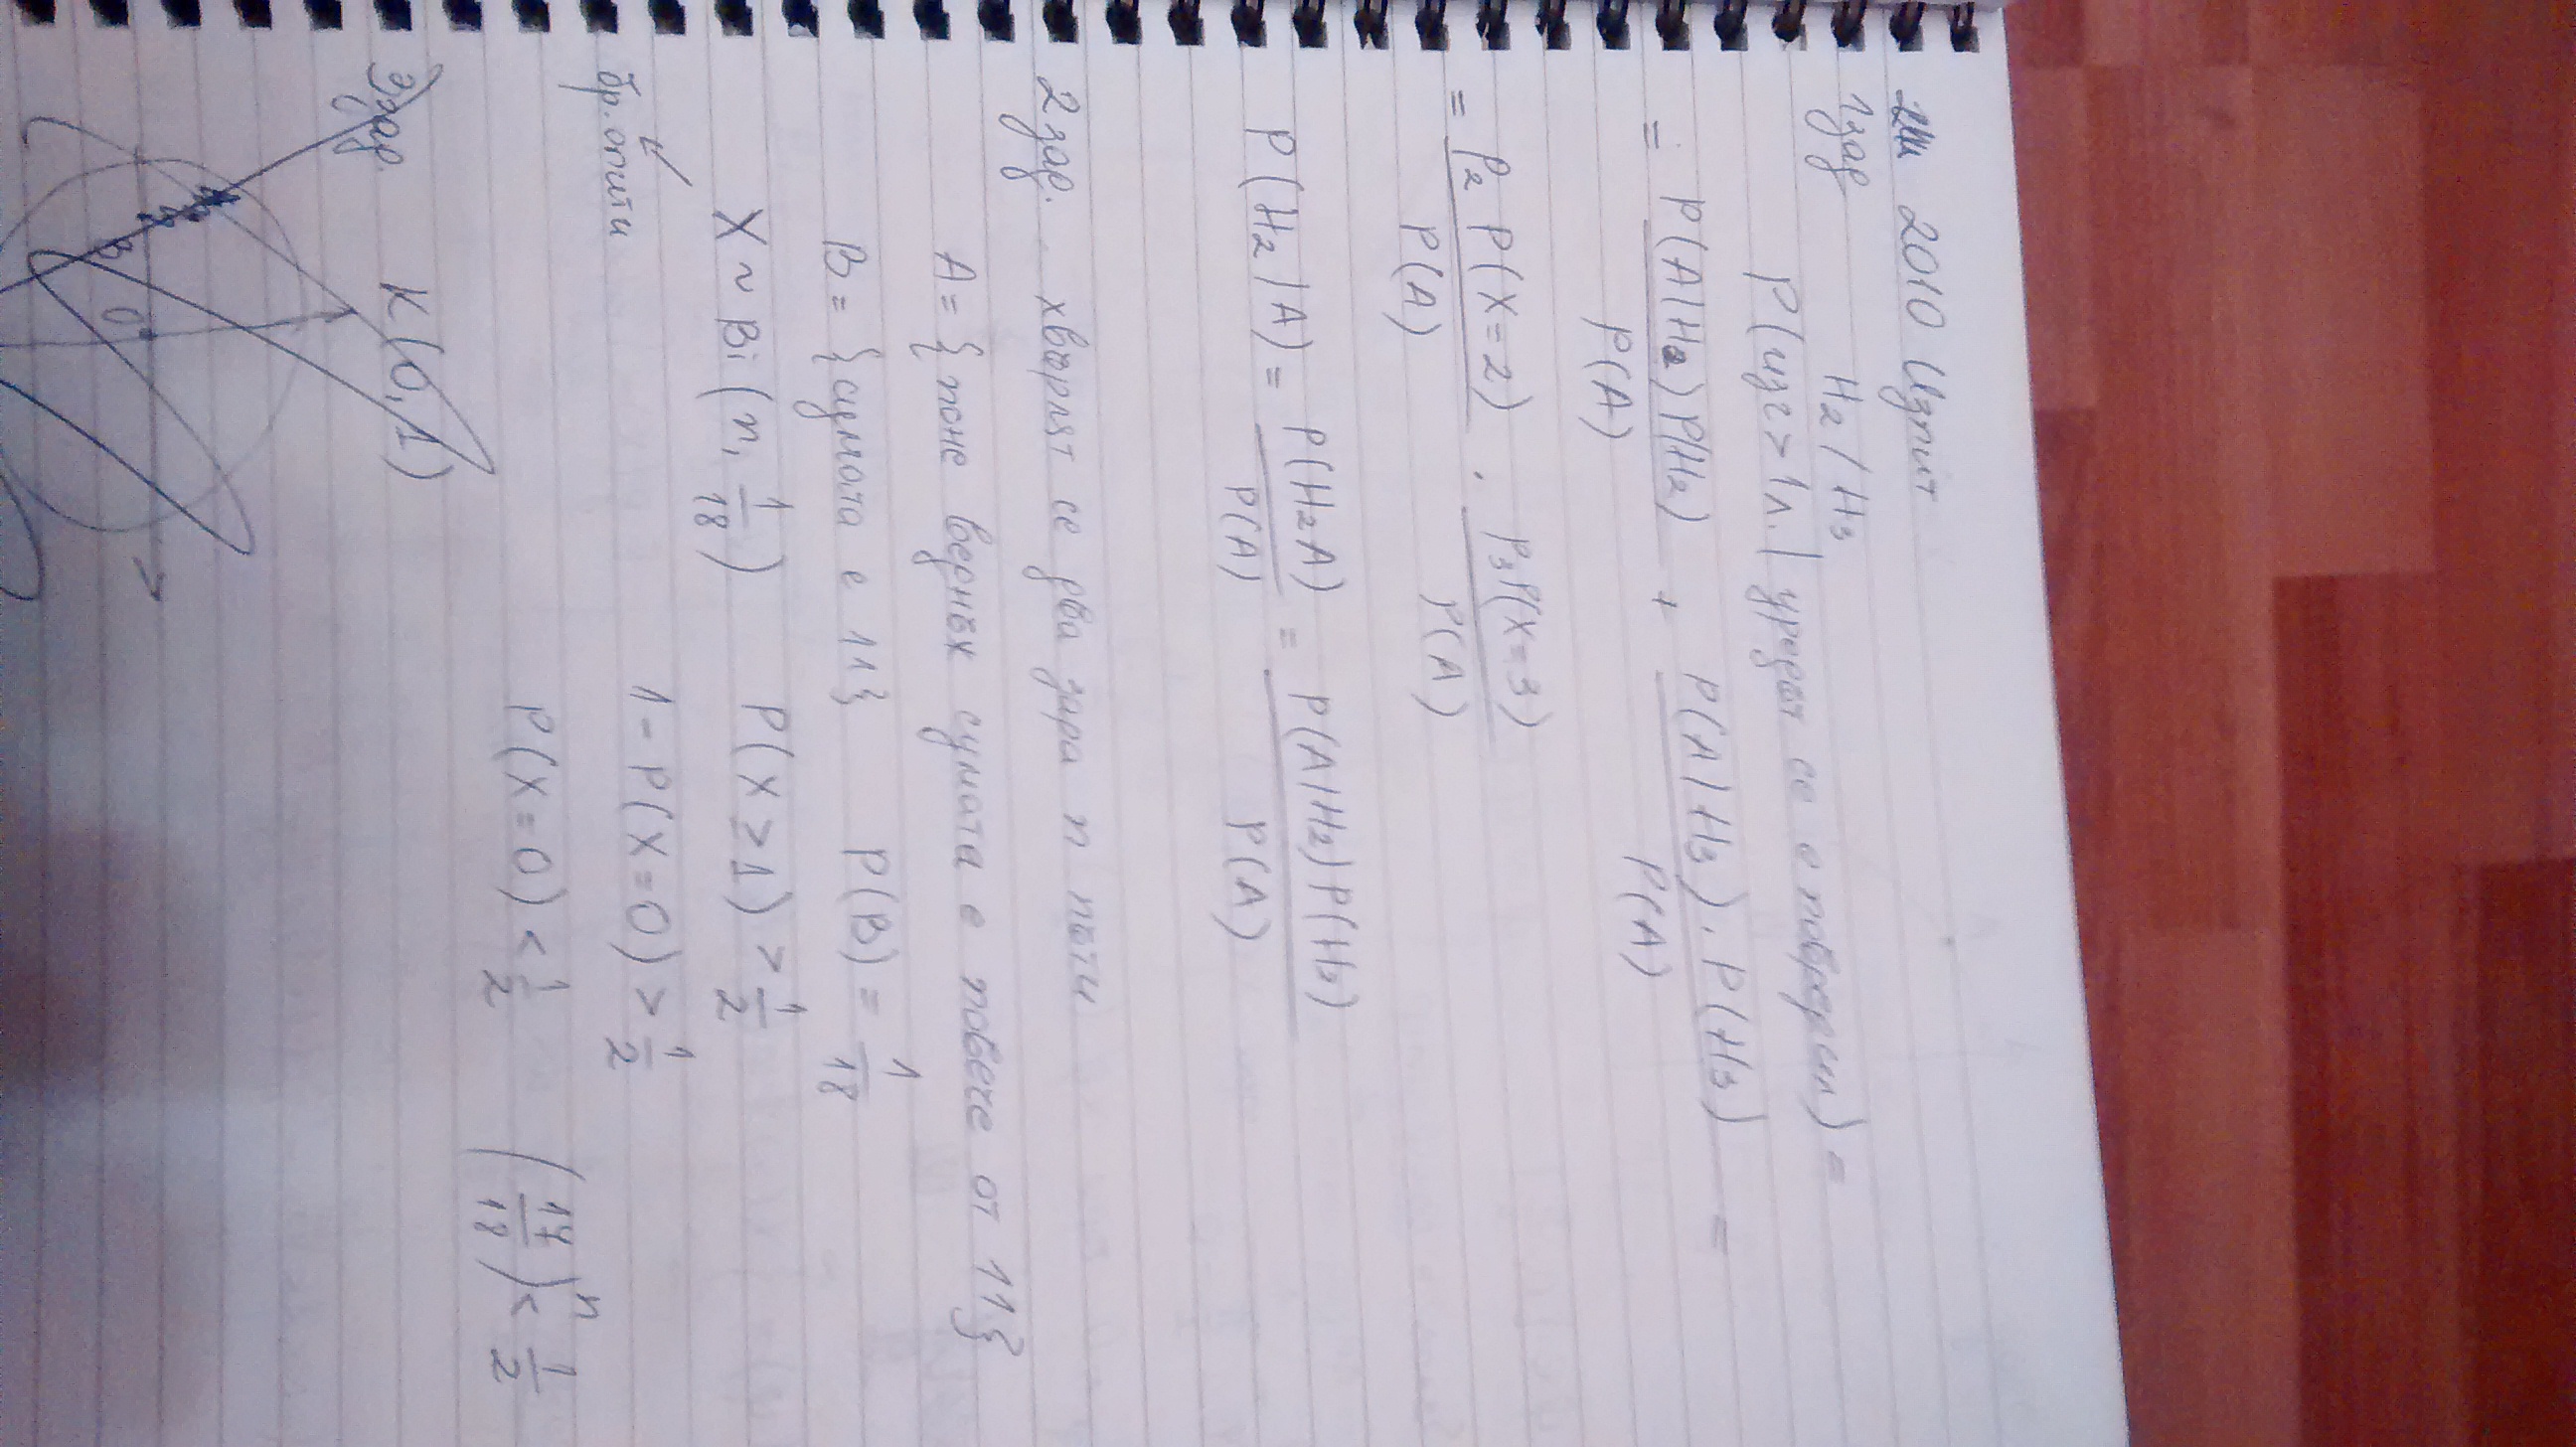 2010 Изпит
1 зад H₂ / H₃
P(изг > 1л. | уредът се е повредил) =
= P(A|H₂)P(H₂) / P(A) + P(A|H₃).P(H₃) / P(A) =
= p₂ P(X=2) / P(A) . p₃P(X=3) / P(A)
P(H₂|A) = P(H₂A) / P(A) = P(A|H₂)P(H₂) / P(A)
2 зад. хвърлят се два зара n пъти
A = {поне веднъж сумата е повече от 11}
B = {сумата е 11} P(B) = 1/18
X ~ Bi(n, 1/18) P(X ≥ 1) > 1/2
бр. опити 1 - P(X = 0) > 1/2
P(X = 0) < 1/2 (17/18)ⁿ < 1/2
3 зад. K(O, 1)
O